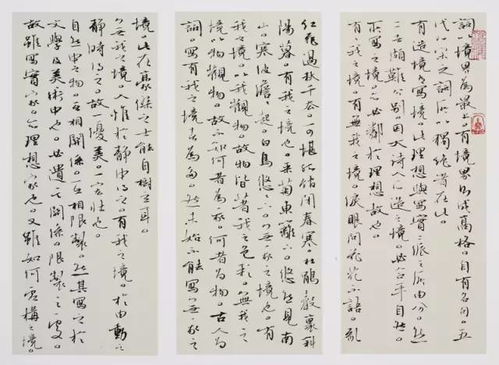 詞以境界為最上。有境界則成高格。自有名句。五
代北宋之詞所以獨絕者在此。
有造境。有寫境。此理想與寫實二派之所由分。然
二者頗難分別。因大詩人所造之境。必合乎自然。
所寫之境。亦必鄰於理想故也。
有有我之境。有無我之境。淚眼問花花不語。亂
紅飛過秋千去。可堪孤館閉春寒。杜鵑聲裏斜
陽暮。有我之境也。采菊東籬下。悠然見南
山。寒波澹澹起。白鳥悠悠下。無我之境也。有
我之境。以我觀物。故物皆著我之色彩。無我之
境。以物觀物。故不知何者為我。何者為物。古人為
詞。寫有我之境者為多。然未始不能寫無我之
境。此在豪傑之士能自樹立耳。
無我之境。人惟於靜中得之。有我之境。於由動之
靜時得之。故一優美一宏壯也。
自然中之物。互相關係。互相限制。然其寫之於
文學及美術中也。必遺其關係。限制之處。
故雖寫實家。亦理想家也。又雖如何虛構之境。